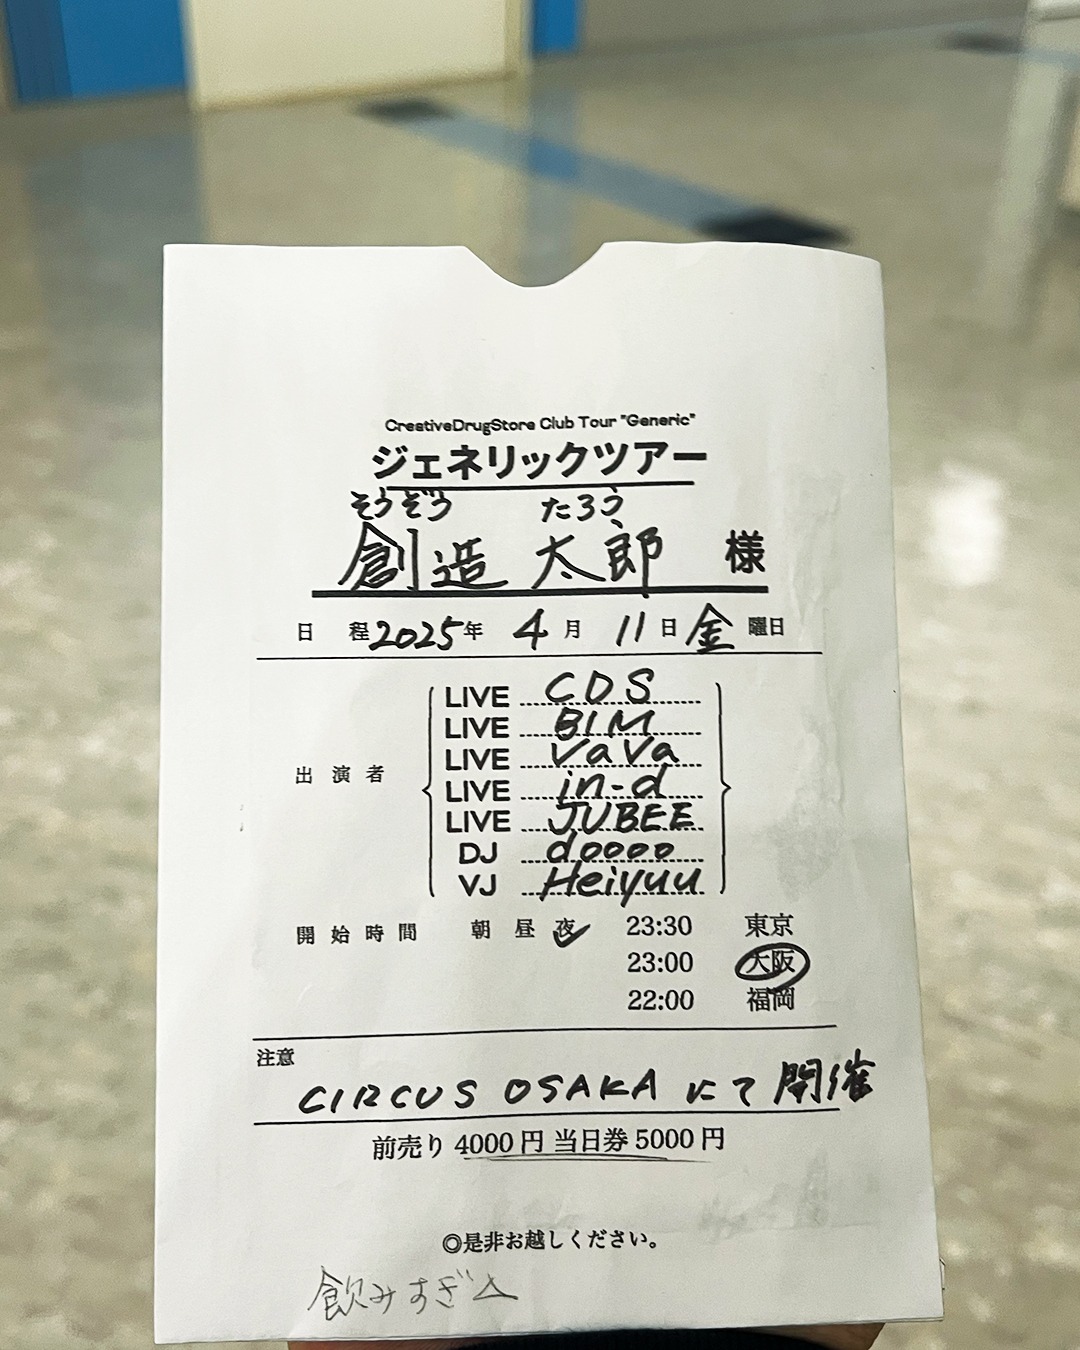 CreativeDrugStore Club Tour "Generic"
ジェネリックツアー
そうぞう たろう
創造 太郎 様
日程 2025年 4月 11日 金曜日
出演者
LIVE CDS
LIVE BIM
LIVE VaVa
LIVE in-d
LIVE JUBEE
DJ doooo
VJ Heiyuu
開始時間 朝 昼 夜 23:30 東京
23:00 大阪
22:00 福岡
注意
CIRCUS OSAKA にて開催
前売り 4000円 当日券 5000円
◎是非お越しください。
飲みすぎ△